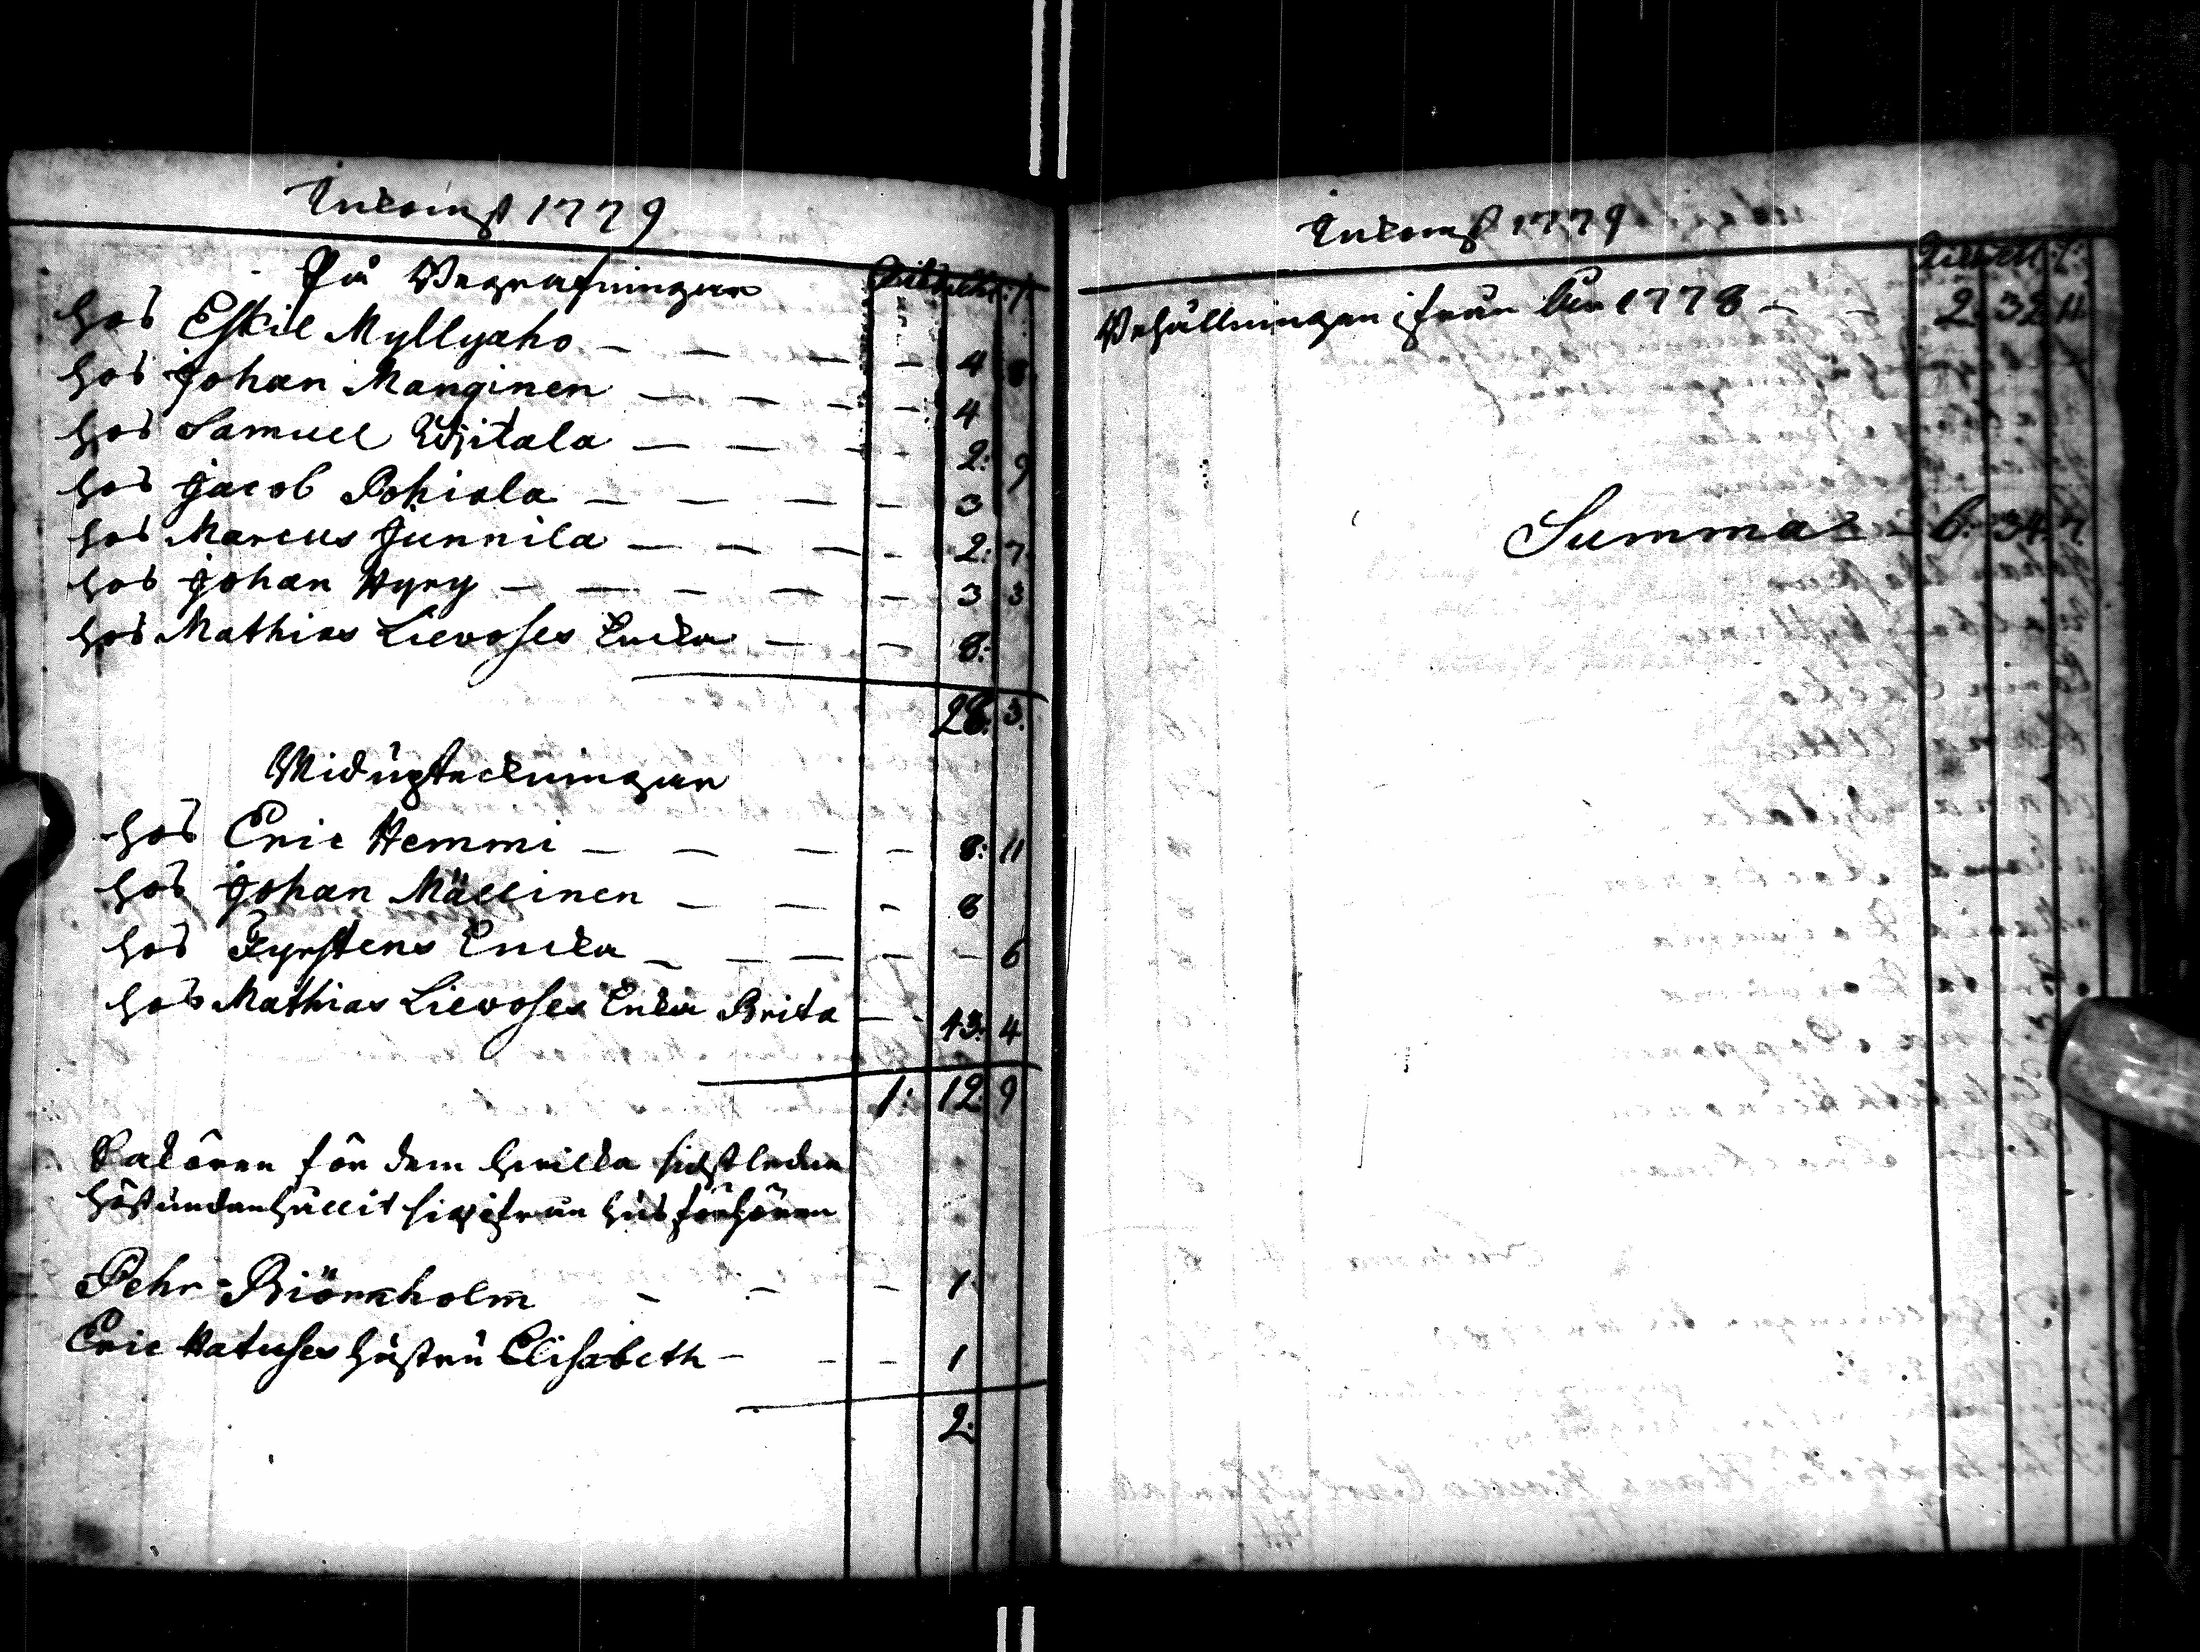 Inkomst 1779
På Begrafningar
hos Eskil Myllyaho — — — — 4 8
hos Johan Manginen — — — — 4
hos Samuel Wjitala — — — — 2: 9
hos Jacob Pohiola — — — — 3
hos Marcus Junnila — — — — 2: 7
hos Johan Hyry — — — — — 3 3
hos Mathias Lievoses Encka — — 8:
28: 3.
Widupteckningar
hos Eric Hemmi — — — — 8: 11
hos Johan Mällinen — — — 8
hos Fyrstens Encka — — — — — 6
hos Mathias Lievoses Enka Brita — - 13: 4
1: 12: 9
Sakören för dem hvilka sidstledne
höst undanhållit sig ifrån husförhören
Pehr Biörnholm - - - 1
Eric Hatuses hustru Elisabeth - - - 1
2:
Inkomst 1779
Behållningen ifrån Åhr 1778 - - 2. 32 11
Summa - 6: 34. 7.